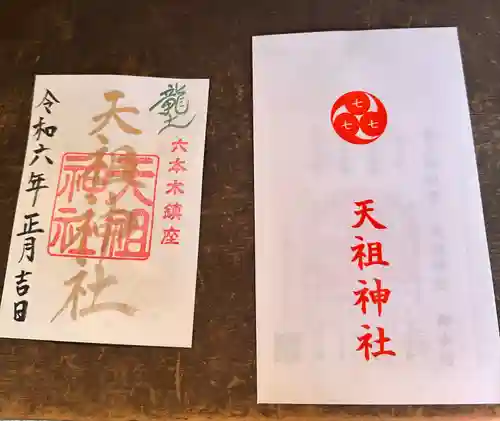 龍土
六本木鎮座
天祖神社
天祖神社
令和六年正月吉日
七七七
天祖神社